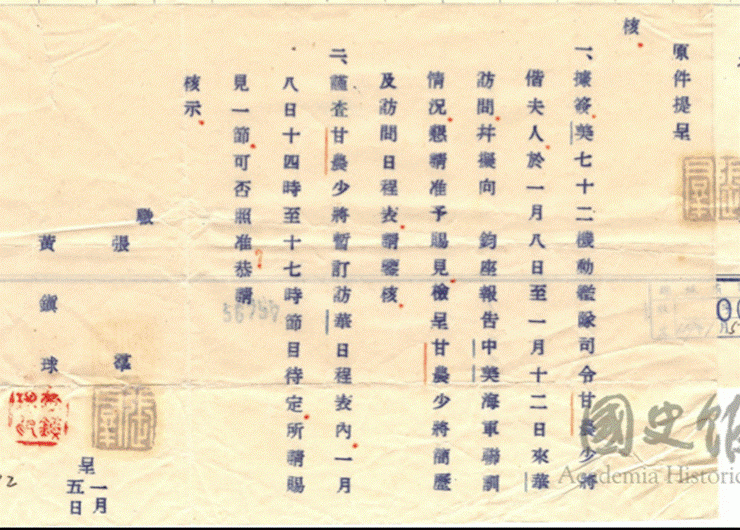 原件提呈
核
一、據簽美七十二機動艦隊司令甘農少將
偕夫人於一月八日至一月十二日來華
訪問并擬向 鈞座報告中美海軍聯訓
情況懇請准予賜見檢呈甘農少將簡歷
及訪問日程表請鑒核
二、謹查甘農少將暫訂訪華日程表內一月
八日十四時至十七時節目待定所請賜
見一節可否照准恭請
核示
職 張 羣
黃鎮球
呈 一月五日
56757
國史館
Academia Historic